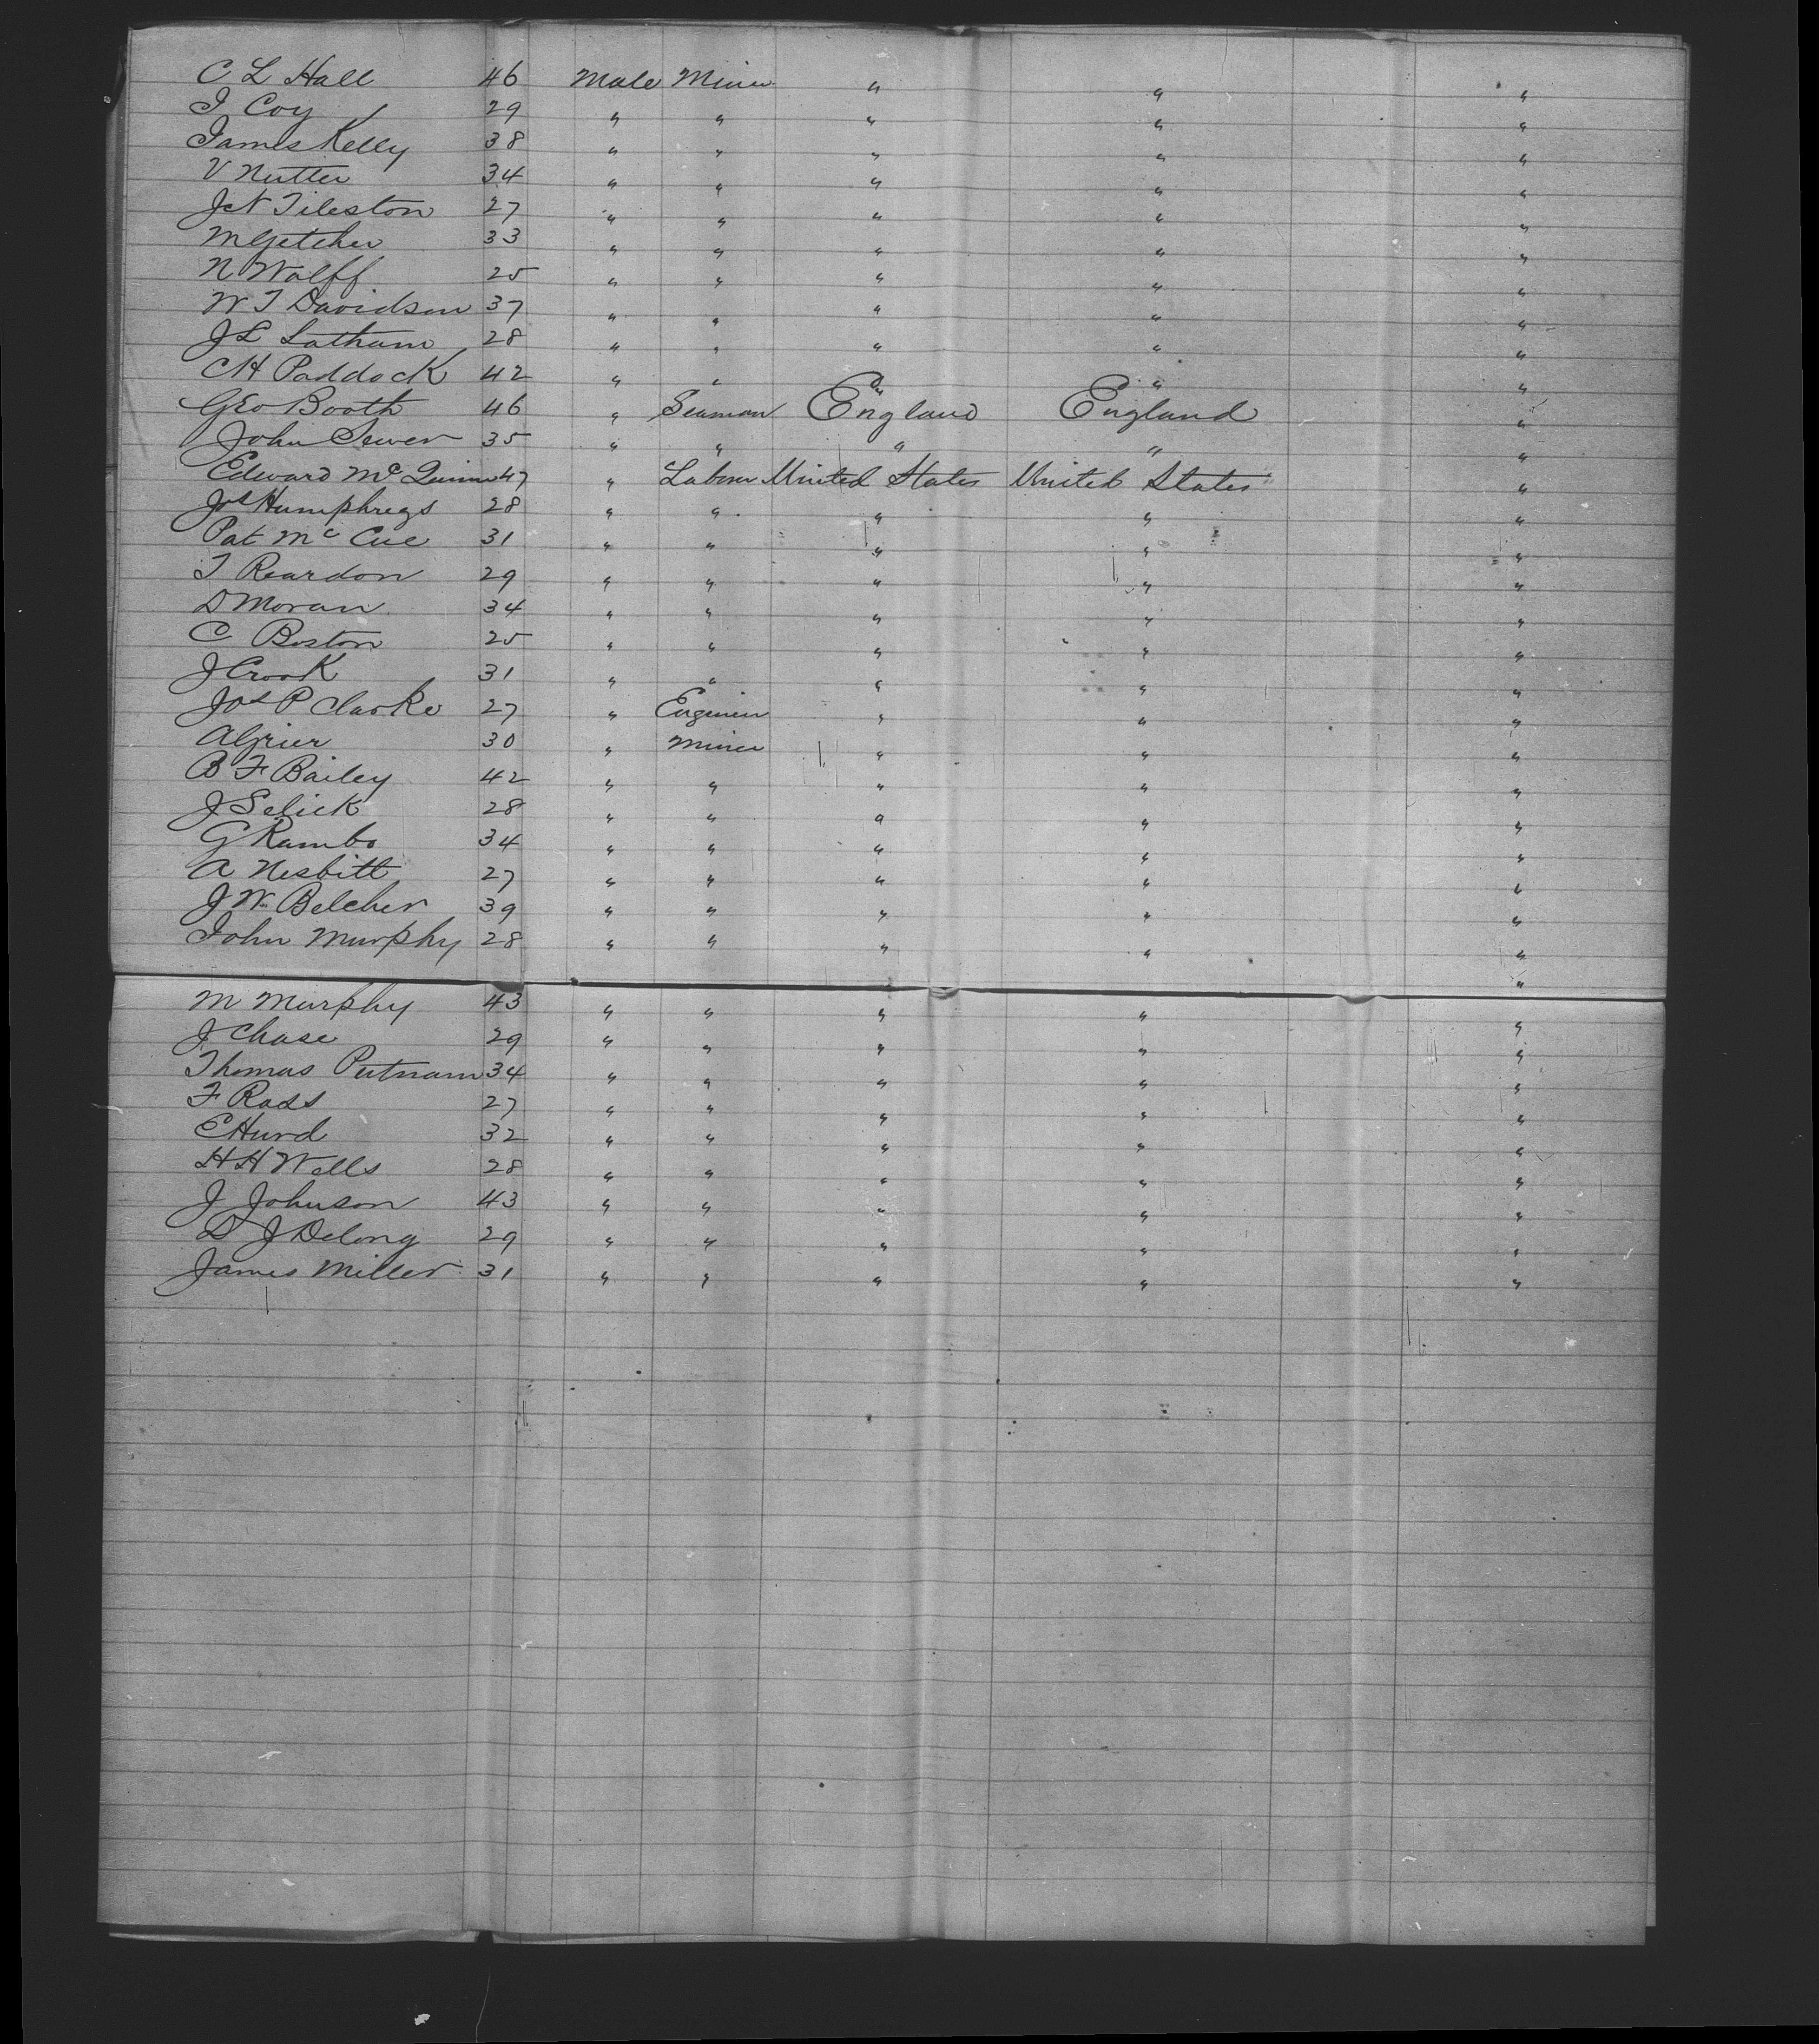 C L Hall 46 Male Miner " " "
I Coy 29 " " " " "
James Kelly 38 " " " " "
V Nutter 34 " " " " "
J N Tileston 27 " " " " "
M Getcher 33 " " " " "
N Wolff 25 " " " " "
W T Davidson 37 " " " " "
J L Latham 28 " " " " "
C H Paddock 42 " " " " "
Geo Booth 46 " Seaman England England "
John Sewer 35 " " " " "
Edward McQuinn 47 " Laborer United States United States "
Jos Humphreys 28 " " " " "
Pat McCue 31 " " " " "
T Reardon 29 " " " " "
D Moran 34 " " " " "
C Boston 25 " " " " "
J Crook 31 " " " " "
Jos P Clarke 27 " Engineer " " "
A Grier 30 " Miner " " "
B F Bailey 42 " " " " "
J Selick 28 " " " " "
G Rambo 34 " " " " "
A Nesbitt 27 " " " " "
J W Belcher 39 " " " " "
John Murphy 28 " " " " "
"
M Murphy 43 " " " " "
J Chase 29 " " " " "
Thomas Putnam 34 " " " " "
F Rods 27 " " " " "
E Hurd 32 " " " " "
H H Wells 28 " " " " "
J Johnson 43 " " " " "
D J Delong 29 " " " " "
James Miller 31 " " " " "